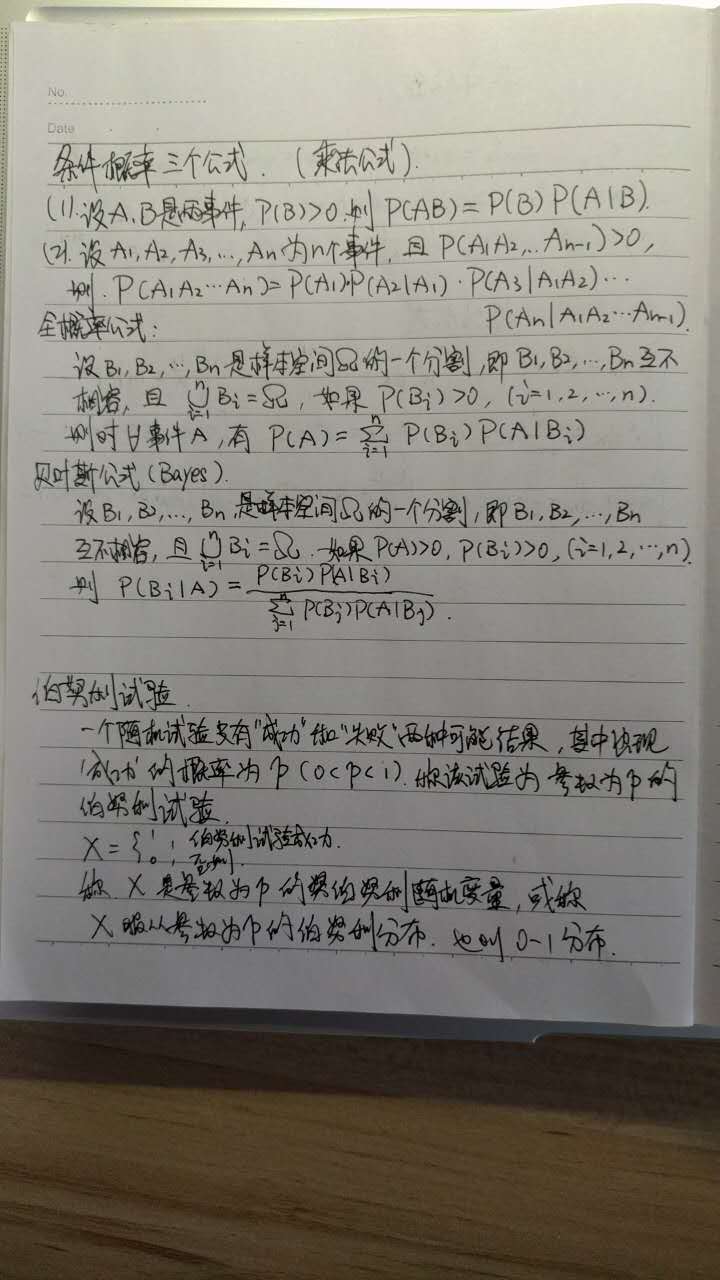 No.
Date
条件概率三个公式.（乘法公式）.
(1).设A,B是两事件, P(B)>0.则 P(AB)=P(B)P(A|B).
(2). 设 A1, A2, A3, ..., An 为n个事件, 且 P(A1A2...An-1)>0,
则. P(A1A2···An)=P(A1)·P(A2|A1)·P(A3|A1A2)···
P(An|A1A2···An-1).
全概率公式:
设 B1, B2, ···, Bn 是样本空间Ω的一个分割, 即 B1, B2, ···, Bn 互不
相容, 且 ⋃ⁿᵢ₌₁ Bi = Ω, 如果 P(Bi)>0, (i=1,2,···,n).
则对∀事件A, 有 P(A)=∑ⁿᵢ₌₁ P(Bi)P(A|Bi)
贝叶斯公式(Bayes).
设 B1, B2, ..., Bn 是样本空间Ω的一个分割, 即 B1, B2, ···, Bn
互不相容, 且 ⋃ⁿᵢ₌₁ Bi = Ω. 如果 P(A)>0, P(Bi)>0, (i=1,2,···,n).
则 P(Bi|A) = P(Bi)P(A|Bi) / ∑ⁿⱼ₌₁ P(Bj)P(A|Bj).
伯努利试验.
一个随机试验只有"成功"和"失败"两种可能结果, 其中出现
"成功"的概率为 p (0<p<1). 称该试验为 参数为p的
伯努利试验.
X = { 1, 伯努利试验成功.
0, 否则.
称 X 是参数为p的 伯努利随机变量, 或称
X 服从参数为p的伯努利分布. 也叫 0-1分布.